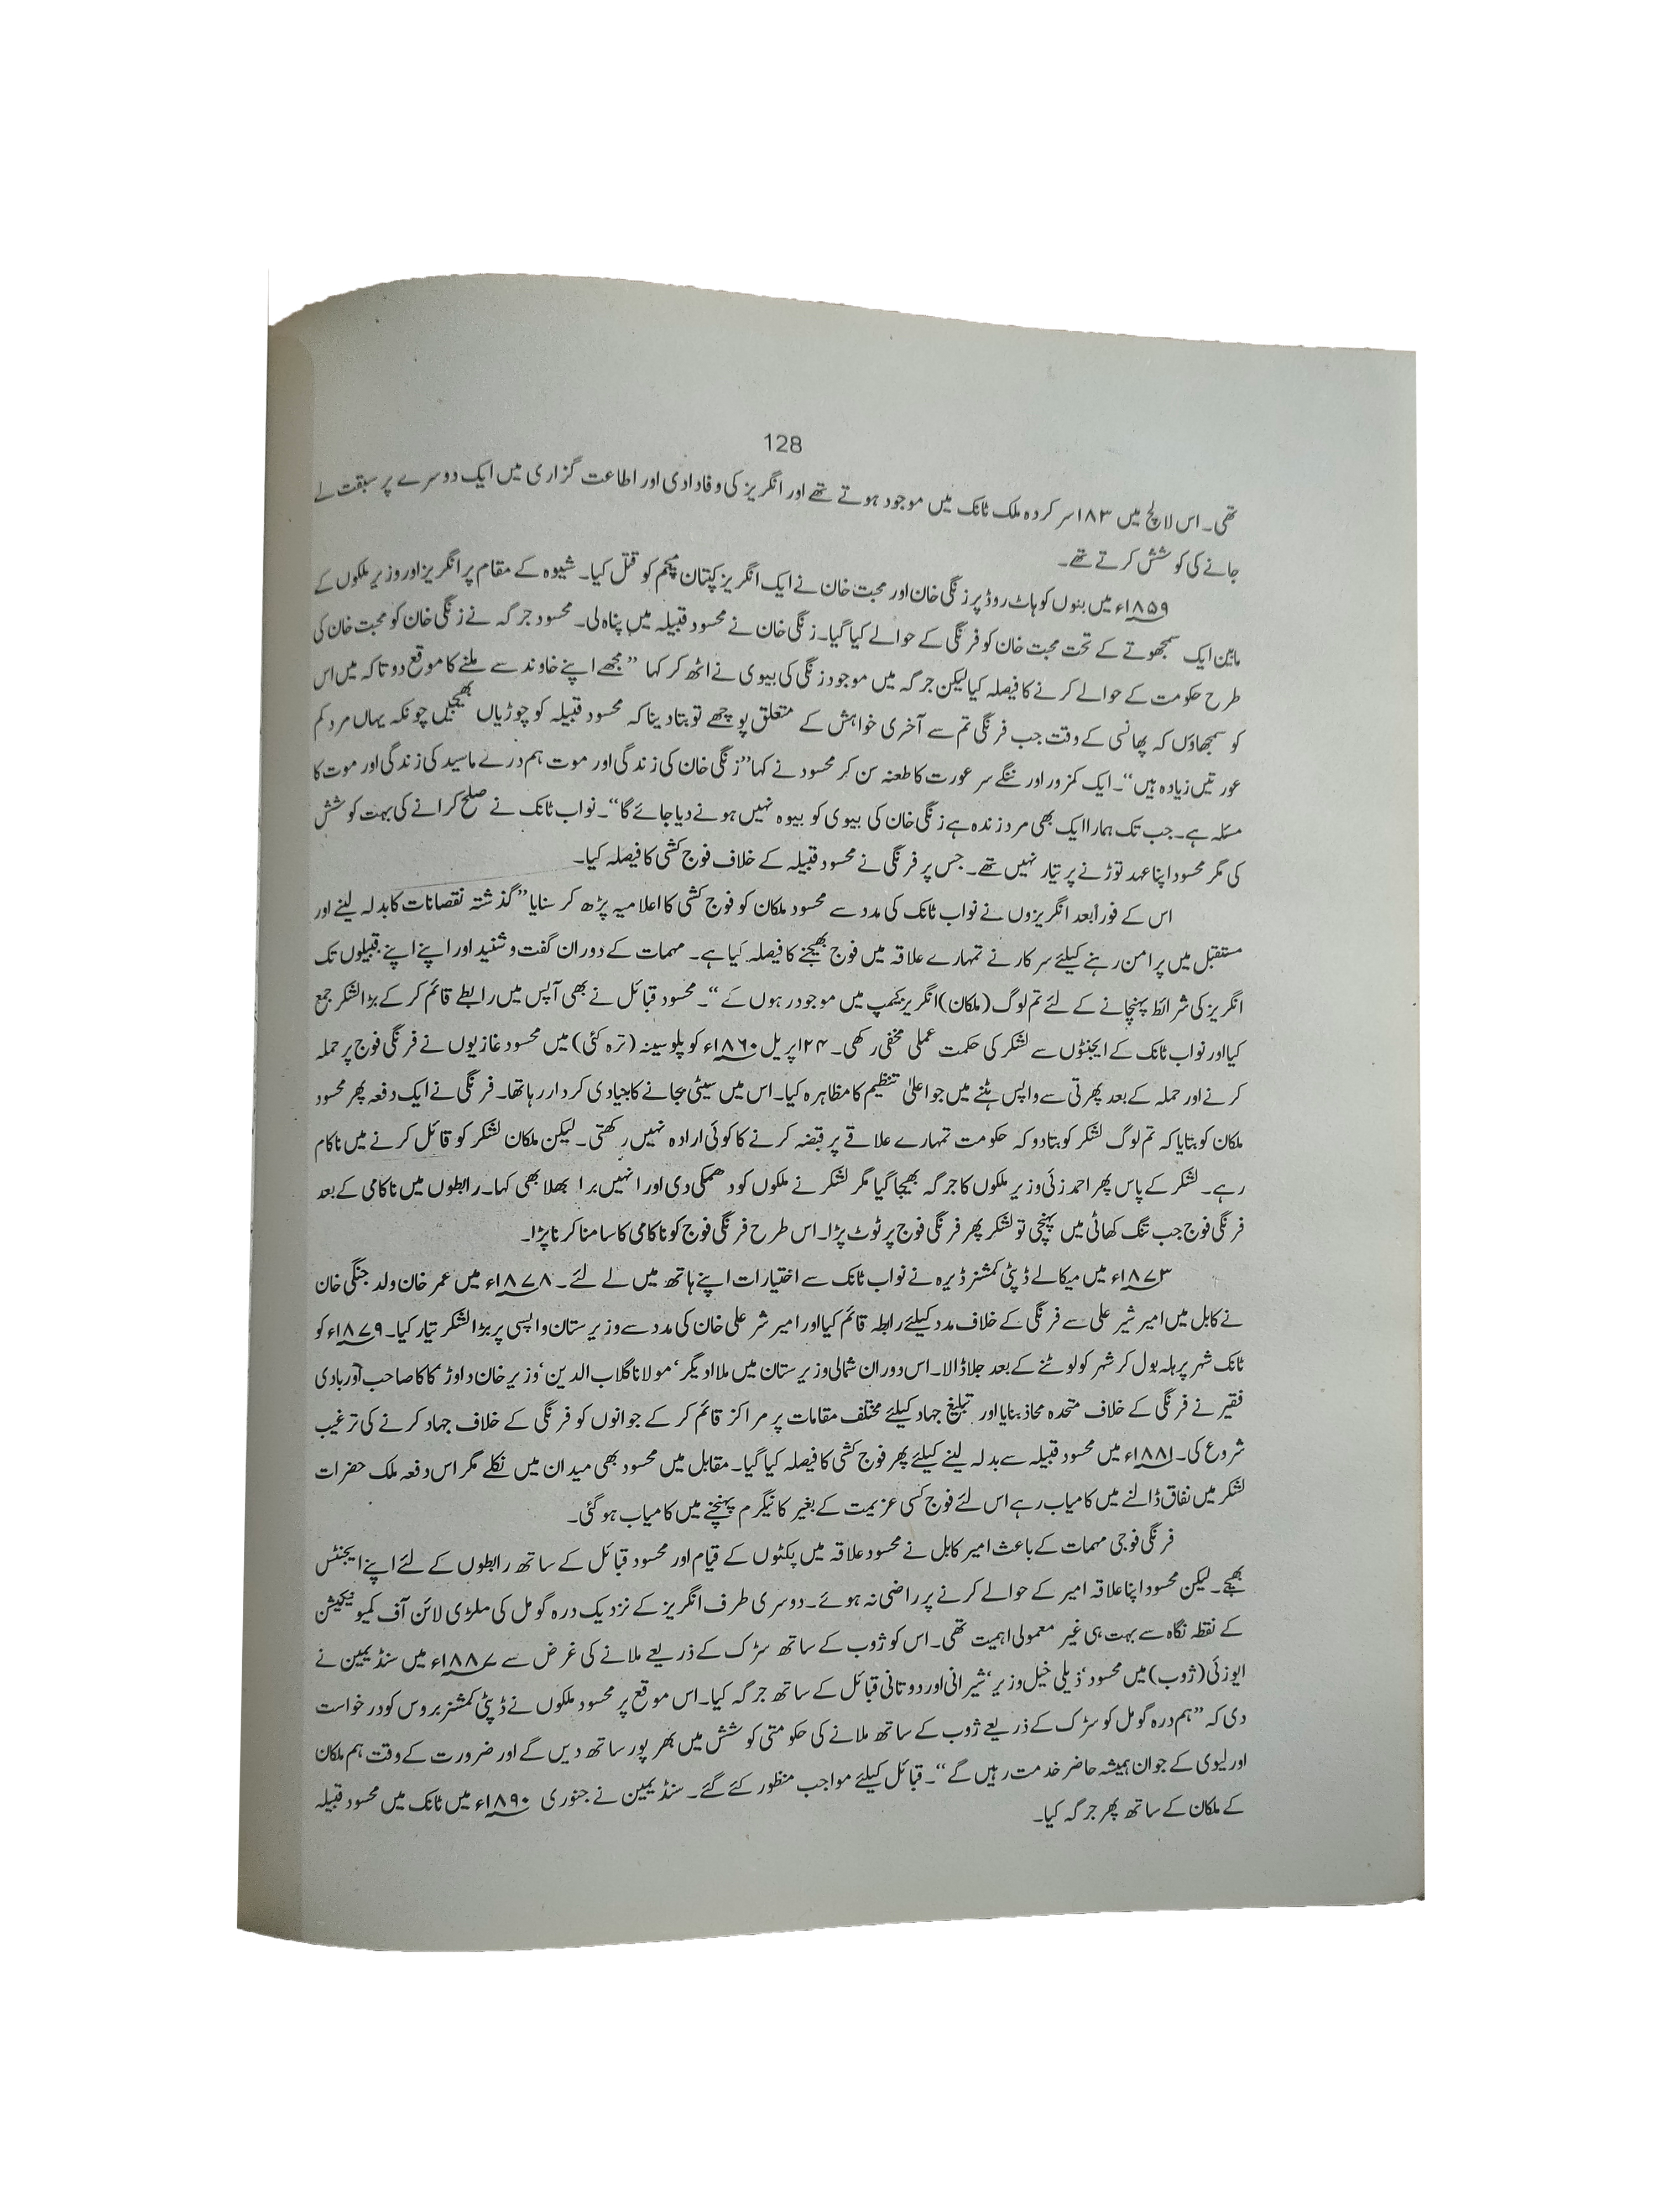 128
تھی۔ اس لالچ میں ۱۸۳ سرکردہ ملک ٹانک میں موجود ہوتے تھے اور انگریز کی وفاداری اور اطاعت گزاری میں ایک دوسرے پر سبقت لے
جانے کی کوشش کرتے تھے۔
۱۸۵۹ء میں بنوں کوہاٹ روڈ پر زنگی خان اور محبت خان نے ایک انگریز کپتان مچم کو قتل کیا۔ شیوہ کے مقام پر انگریز اور وزیر ملکوں کے
مابین ایک سمجھوتے کے تحت محبت خان کو فرنگی کے حوالے کیا گیا۔ زنگی خان نے محسود قبیلہ میں پناہ لی۔ محسود جرگہ نے زنگی خان کو محبت خان کی
طرح حکومت کے حوالے کرنے کا فیصلہ کیا لیکن جرگہ میں موجود زنگی کی بیوی نے اٹھ کر کہا ”مجھے اپنے خاوند سے ملنے کا موقع دو تاکہ میں اس
کو سمجھاؤں کہ پھانسی کے وقت جب فرنگی تم سے آخری خواہش کے متعلق پوچھے تو بتا دینا کہ محسود قبیلہ کو چوڑیاں بھیجیں چونکہ یہاں مرد کم
عورتیں زیادہ ہیں“۔ ایک کمزور اور ننگے سر عورت کا طعنہ سن کر محسود نے کہا ”زنگی خان کی زندگی اور موت ہم درے ماسید کی زندگی اور موت کا
مسئلہ ہے۔ جب تک ہمارا ایک بھی مرد زندہ ہے زنگی خان کی بیوی کو بیوہ نہیں ہونے دیا جائے گا“۔ نواب ٹانک نے صلح کرانے کی بہت کوشش
کی مگر محسود اپنا عہد توڑنے پر تیار نہیں تھے۔ جس پر فرنگی نے محسود قبیلہ کے خلاف فوج کشی کا فیصلہ کیا۔
اس کے فوراً بعد انگریزوں نے نواب ٹانک کی مدد سے محسود ملکان کو فوج کشی کا اعلامیہ پڑھ کر سنایا ”گذشتہ نقصانات کا بدلہ لینے اور
مستقبل میں پرامن رہنے کیلئے سرکار نے تمہارے علاقہ میں فوج بھیجنے کا فیصلہ کیا ہے۔ مہمات کے دوران گفت و شنید اور اپنے اپنے قبیلوں تک
انگریز کی شرائط پہنچانے کے لئے تم لوگ (ملکان) انگریز کیمپ میں موجود رہوں گے“۔ محسود قبائل نے بھی آپس میں رابطے قائم کر کے بڑا لشکر جمع
کیا اور نواب ٹانک کے ایجنٹوں سے لشکر کی حکمت عملی مخفی رکھی۔ ۲۴ اپریل ۱۸۶۰ء کو پلوسینہ (ترہ کئی) میں محسود غازیوں نے فرنگی فوج پر حملہ
کرنے اور حملہ کے بعد پھرتی سے واپس ہٹنے میں جو اعلیٰ تنظیم کا مظاہرہ کیا۔ اس میں سیٹی بجانے کا بنیادی کردار رہا تھا۔ فرنگی نے ایک دفعہ پھر محسود
ملکان کو بتایا کہ تم لوگ لشکر کو بتا دو کہ حکومت تمہارے علاقے پر قبضہ کرنے کا کوئی ارادہ نہیں رکھتی۔ لیکن ملکان لشکر کو قائل کرنے میں ناکام
رہے۔ لشکر کے پاس پھر احمد زئی وزیر ملکوں کا جرگہ بھیجا گیا مگر لشکر نے ملکوں کو دھمکی دی اور انہیں برا بھلا بھی کہا۔ رابطوں میں ناکامی کے بعد
فرنگی فوج جب تنگ کھاٹی میں پہنچی تو لشکر پھر فرنگی فوج پر ٹوٹ پڑا۔ اس طرح فرنگی فوج کو ناکامی کا سامنا کرنا پڑا۔
۱۸۷۳ء میں میکالے ڈپٹی کمشنر ڈیرہ نے نواب ٹانک سے اختیارات اپنے ہاتھ میں لے لئے۔ ۱۸۷۸ء میں عمر خان ولد جنگی خان
نے کابل میں امیر شیر علی سے فرنگی کے خلاف مدد کیلئے رابطہ قائم کیا اور امیر شر علی خان کی مدد سے وزیرستان واپسی پر بڑا لشکر تیار کیا۔ ۱۸۷۹ء کو
ٹانک شہر پر ہلہ بول کر شہر کو لوٹنے کے بعد جلا ڈالا۔ اس دوران شمالی وزیرستان میں ملا ادیگر‘ مولانا گلاب الدین‘ وزیر خان داوڑ کاکا صاحب اور ہادی
فقیر نے فرنگی کے خلاف متحدہ محاذ بنایا اور تبلیغ جہاد کیلئے مختلف مقامات پر مراکز قائم کر کے جوانوں کو فرنگی کے خلاف جہاد کرنے کی ترغیب
شروع کی۔ ۱۸۸۱ء میں محسود قبیلہ سے بدلہ لینے کیلئے پھر فوج کشی کا فیصلہ کیا گیا۔ مقابل میں محسود بھی میدان میں نکلے مگر اس دفعہ ملک حضرات
لشکر میں نفاق ڈالنے میں کامیاب رہے اس لئے فوج کسی عزیمت کے بغیر کانیگرم پہنچنے میں کامیاب ہو گئی۔
فرنگی فوجی مہمات کے باعث امیر کابل نے محسود علاقہ میں پکٹوں کے قیام اور محسود قبائل کے ساتھ رابطوں کے لئے اپنے ایجنٹس
بھیجے۔ لیکن محسود اپنا علاقہ امیر کے حوالے کرنے پر راضی نہ ہوئے۔ دوسری طرف انگریز کے نزدیک درہ گومل کی ملٹری لائن آف کمیونیکیشن
کے نقطہ نگاہ سے بہت ہی غیر معمولی اہمیت تھی۔ اس کو ژوب کے ساتھ سڑک کے ذریعے ملانے کی غرض سے ۱۸۸۷ء میں سنڈیمین نے
ایوزئی (ژوب) میں محسود‘ ذیلی خیل وزیر‘ شیرانی اور دوتانی قبائل کے ساتھ جرگہ کیا۔ اس موقع پر محسود ملکوں نے ڈپٹی کمشنر بروس کو درخواست
دی کہ ”ہم درہ گومل کو سڑک کے ذریعے ژوب کے ساتھ ملانے کی حکومتی کوشش میں بھرپور ساتھ دیں گے اور ضرورت کے وقت ہم ملکان
اور لیوی کے جوان ہمیشہ حاضر خدمت رہیں گے“۔ قبائل کیلئے مواجب منظور کئے گئے۔ سنڈیمین نے جنوری ۱۸۹۰ء میں ٹانک میں محسود قبیلہ
کے ملکان کے ساتھ پھر جرگہ کیا۔